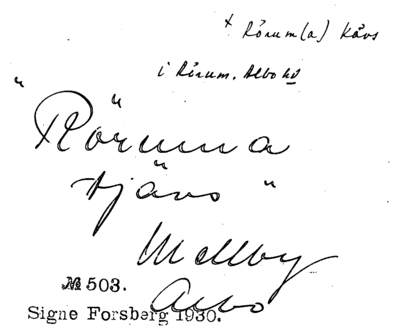 + Rörum(a) Kåvs
i Rörum. Albo hd
"Röruma
tjävs"
Mellby
Albo
№ 503.
Signe Forsberg 1930.